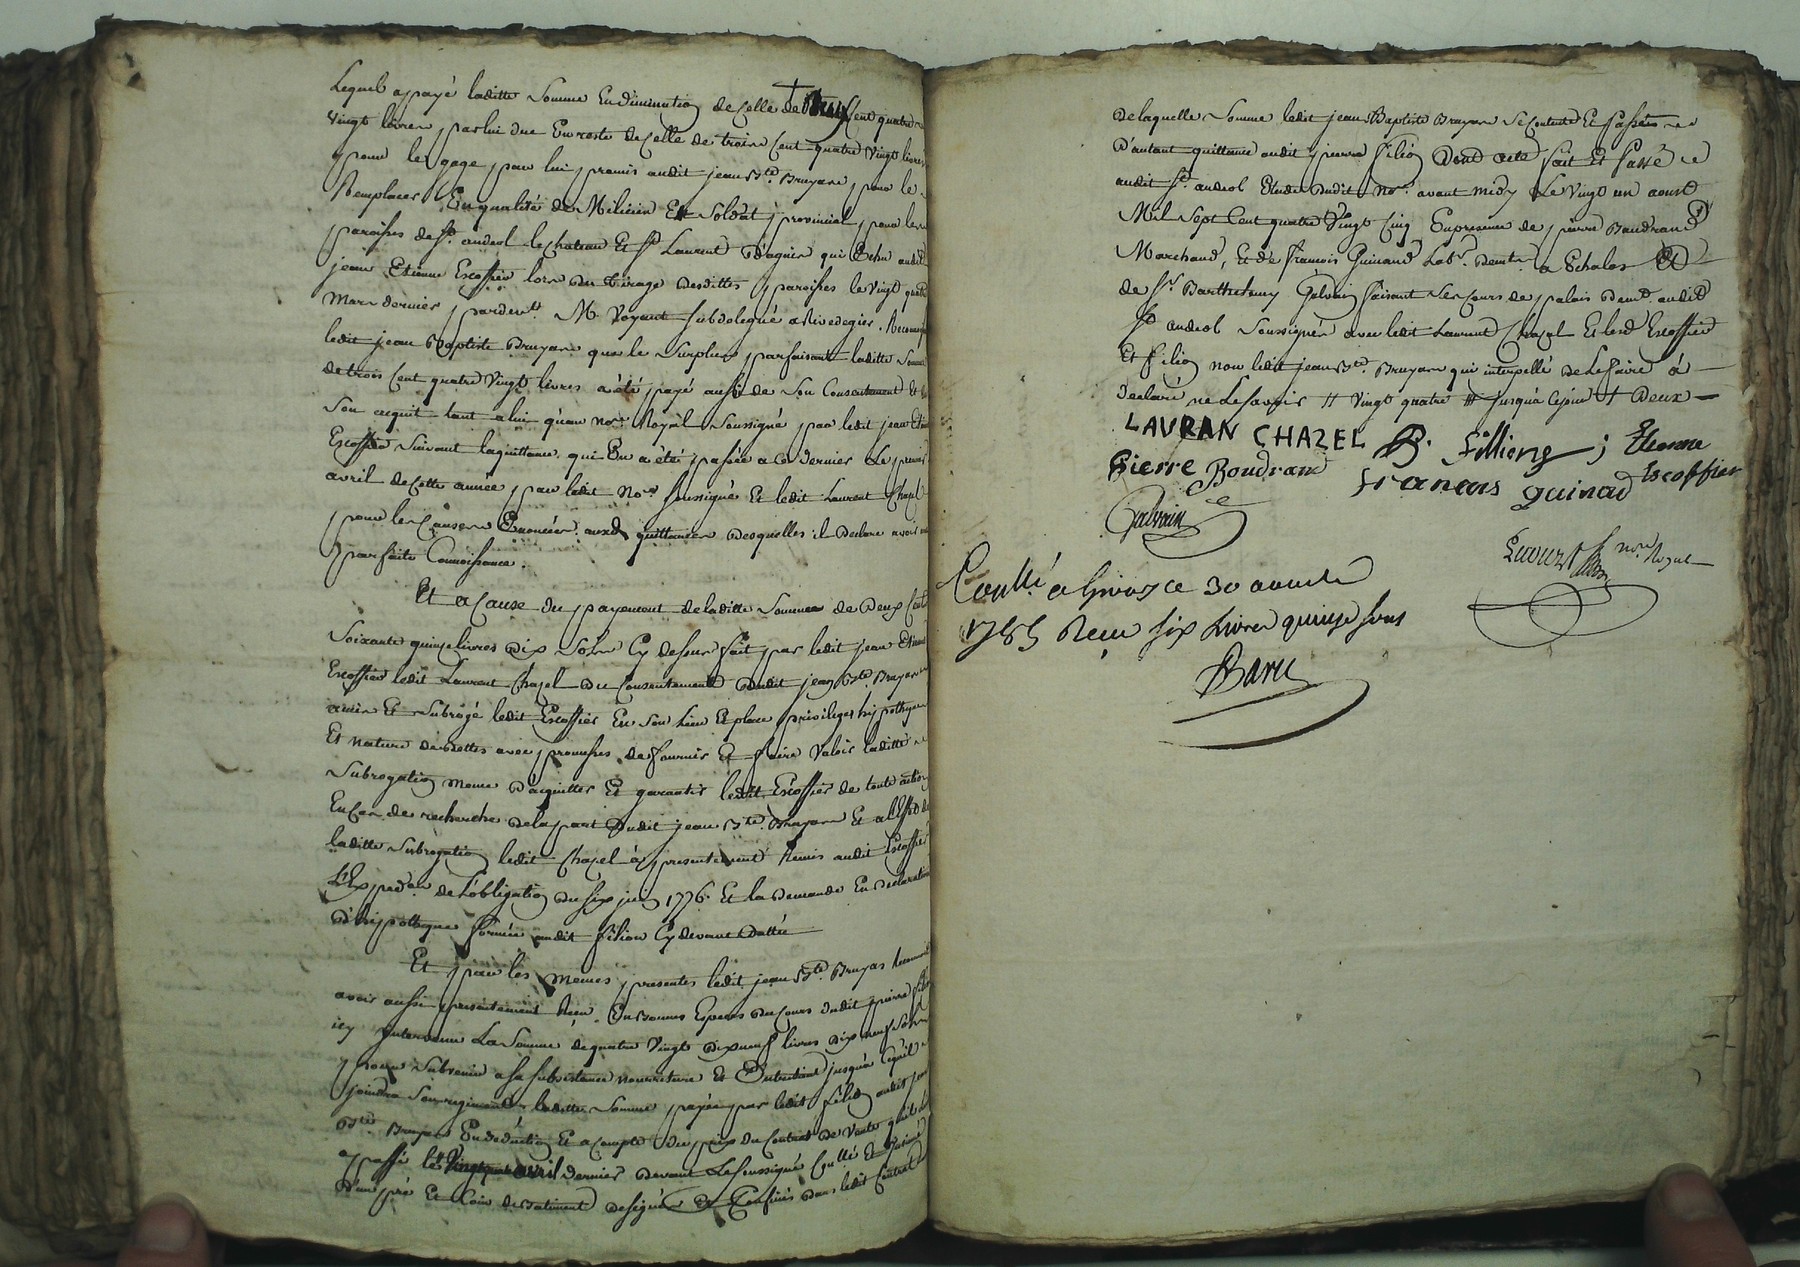 Lequel a payé laditte Somme En diminution de Celle de Cent quatre
vingt livres par lui due En reste de Celle de trois Cent quatre Vingt livres
pour les gage par lui promis audit jean Bte. Bruyas pour le
Remplacer En qualité de Milicien Et Soldat provincial pour les
paroisses de St. andeol le chateau Et St Laurent D'agnier qui Echu audit
jean Etienne Escoffier lors du tirage desdittes paroisses le Vingt quatre
Mars dernier pardevt. M. Voyant Subdelegué a Rivedegier. Reconnoit
ledit jean Baptiste Bruyas que le Surplus parfaisant laditte Somme
de trois Cent quatre Vingt livres a été payé aussi de Son Consentement et
Son acquit tant a lui qu'au nore. Royal Soussigné par ledit jean Etienne
Escoffier Suivant la quittance qui En a été passée a Ce dernier Le premier
avril de Cette année par ledit Nore. soussigné Et ledit Laurent Chazel
pour les Causes Enoncées auxd. quittances desquelles il Declare avoir
parfaite Connoissance.
Et a Cause du payement de laditte Somme de Deux Cent
Soixante quinze livres Dix Sols Cy dessus fait par ledit jean Etienne
Escoffier ledit Laurent Chazel du Consentement dudit jean Bte. Bruyas
a mis Et Subrogé ledit Escoffier En Son lieu Et place privileges hypotheque
Et nature de dettes avec promesses de fournir Et faire Valoir laditte
Subrogation meme D'acquitter Et garantir ledit Escoffier de toute action
En Cas de recherche de la part dudit jean Bte. Bruyas Et a l'Effet de
laditte Subrogation ledit Chazel a presentement Remis audit Escoffier
L'Expedon. de l'obligation du six juin 1776. Et la Demande En Declaration
D'hippotheque formée audit filion Cy devant Dattée
Et par les memes presentes ledit jean Bte. Bruyas Reconnoit
avoir aussi presentement Reçu En Bonnes Especes du Cours dudit pierre filion
icy Intervenu La Somme de quatre Vingt Dix neuf livres Dix neuf Sols
pour Subvenir a Sa subsistance nourriture Et Entretient jusqu'a Ce qu'il
joindra Son regiment laditte Somme payée par ledit filion audit jean
Bte. Bruyas En deduction Et a Compte du prix du Contrat de Vente qu'il
a passé le Vingt avril dernier devant Le soussigné Conllé Et
D'un pré Et Coin de Batiment designés Et Confinés dans ledit Contrat
de laquelle Somme ledit jean Baptiste Bruyas Se Contente Et passe
D'autant quittance audit pierre filion Dont acte fait Et passé
audit St. andeol Etude dudit Nore. avant midy Le Vingt un aoust
Mil Sept Cent quatre Vingt Cinq En presence de pierre Baudrand
Marchand, Et de francois Guinand Labr. Demts. a Echalas Et
de Sr. Barthelemy Galvain faisant Ses Cours de palais Demt. audit
St andeol Soussignés avec ledit Laurent Chazel Et lesd Escoffier
Et filion non ledit jean Bte. Bruyas qui interpellé de Le faire a
declaré ne Le Savoir // Vingt quatre # jusqu'a Ce jour + Deux
LAURAN CHAZEL P. filliong j Etienne
Pierre Boudrand francois guinad Escoffier
Galvain
nore Royal
Conllé a Givors ce 30 aoust
1785 Reçu six Livres quinze sous